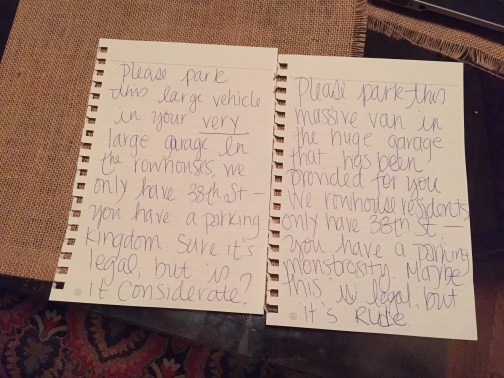 Please park
this large vehicle
in your very
large garage. In
the rowhouses, we
only have 38th St —
you have a parking
kingdom. Sure it's
legal, but is
it considerate?
Please park this
massive van in
the huge garage
that has been
provided for you
We rowhouse residents
only have 38th St —
you have a parking
monstrosity. Maybe
this is legal, but
it's Rude.